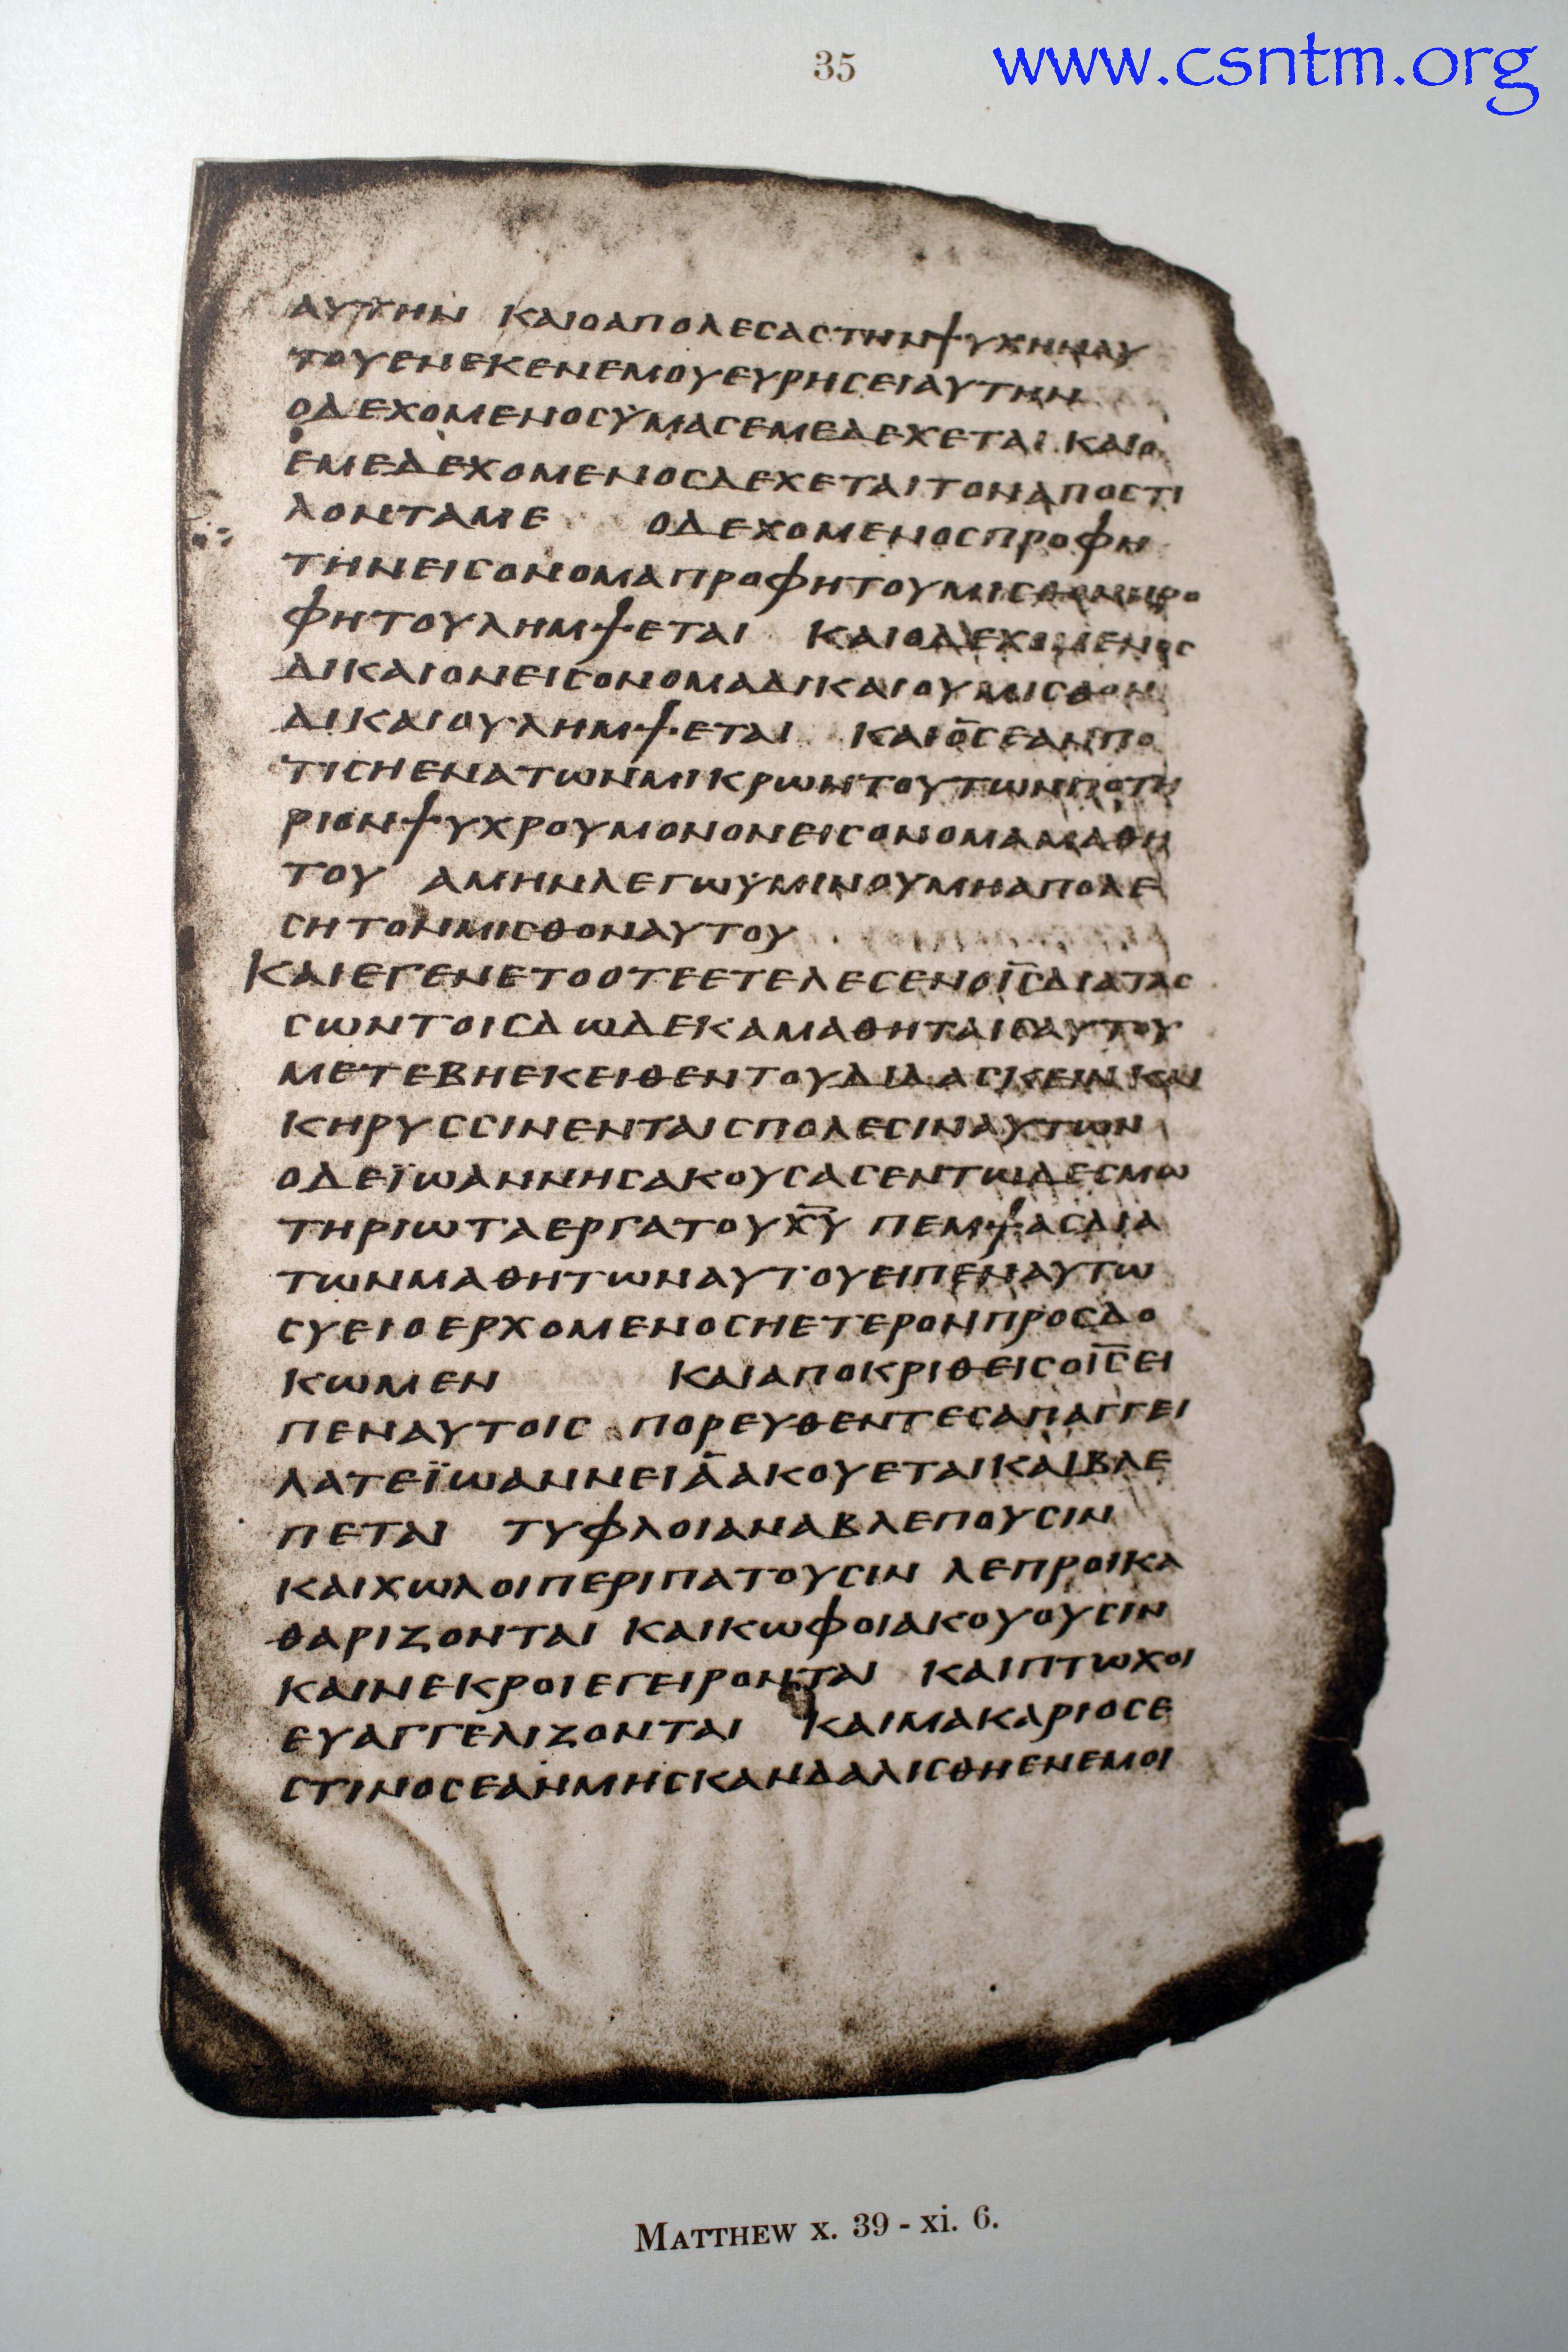 35
www.csntm.org
ΑΥΤΗΝ ΚΑΙΟΑΠΟΛΕϹΑϹΤΗΝΨΥΧΗΝΑΥ
ΤΟΥΕΝΕΚΕΝΕΜΟΥΕΥΡΗϹΕΙΑΥΤΗΝ
ΟΔΕΧΟΜΕΝΟϹΥΜΑϹΕΜΕΔΕΧΕΤΑΙ ΚΑΙΟ
ΕΜΕΔΕΧΟΜΕΝΟϹΔΕΧΕΤΑΙΤΟΝΑΠΟϹΤΙ
ΛΟΝΤΑΜΕ ΟΔΕΧΟΜΕΝΟϹΠΡΟΦΗ
ΤΗΝΕΙϹΟΝΟΜΑΠΡΟΦΗΤΟΥΜΙϹΘΟΝΠΡΟ
ΦΗΤΟΥΛΗΜΨΕΤΑΙ ΚΑΙΟΔΕΧΟΜΕΝΟϹ
ΔΙΚΑΙΟΝΕΙϹΟΝΟΜΑΔΙΚΑΙΟΥΜΙϹΘΟΝ
ΔΙΚΑΙΟΥΛΗΜΨΕΤΑΙ ΚΑΙΟϹΕΑΝΠΟ
ΤΙϹΗΕΝΑΤΩΝΜΙΚΡΩΝΤΟΥΤΩΝΠΟΤΗ
ΡΙΟΝΨΥΧΡΟΥΜΟΝΟΝΕΙϹΟΝΟΜΑΜΑΘΗ
ΤΟΥ ΑΜΗΝΛΕΓΩΥΜΙΝΟΥΜΗΑΠΟΛΕ
ϹΗΤΟΝΜΙϹΘΟΝΑΥΤΟΥ
ΚΑΙΕΓΕΝΕΤΟΟΤΕΕΤΕΛΕϹΕΝΟΙ̅Ϲ̅ΔΙΑΤΑϹ
ϹΩΝΤΟΙϹΔΩΔΕΚΑΜΑΘΗΤΑΙϹΑΥΤΟΥ
ΜΕΤΕΒΗΕΚΕΙΘΕΝΤΟΥΔΙΔΑϹΚΕΙΝΚΑΙ
ΚΗΡΥϹϹΙΝΕΝΤΑΙϹΠΟΛΕϹΙΝΑΥΤΩΝ
ΟΔΕΪΩΑΝΝΗϹΑΚΟΥϹΑϹΕΝΤΩΔΕϹΜΩ
ΤΗΡΙΩΤΑΕΡΓΑΤΟΥΧ̅Υ̅ ΠΕΜΨΑϹΔΙΑ
ΤΩΝΜΑΘΗΤΩΝΑΥΤΟΥΕΙΠΕΝΑΥΤΩ
ϹΥΕΙΟΕΡΧΟΜΕΝΟϹΗΕΤΕΡΟΝΠΡΟϹΔΟ
ΚΩΜΕΝ ΚΑΙΑΠΟΚΡΙΘΕΙϹΟΙ̅Ϲ̅ΕΙ
ΠΕΝΑΥΤΟΙϹ ΠΟΡΕΥΘΕΝΤΕϹΑΠΑΓΓΕΙ
ΛΑΤΕΪΩΑΝΝΕΙΑΑΚΟΥΕΤΑΙΚΑΙΒΛΕ
ΠΕΤΑΙ ΤΥΦΛΟΙΑΝΑΒΛΕΠΟΥϹΙΝ
ΚΑΙΧΩΛΟΙΠΕΡΙΠΑΤΟΥϹΙΝ ΛΕΠΡΟΙΚΑ
ΘΑΡΙΖΟΝΤΑΙ ΚΑΙΚΩΦΟΙΑΚΟΥΟΥϹΙΝ
ΚΑΙΝΕΚΡΟΙΕΓΕΙΡΟΝΤΑΙ ΚΑΙΠΤΩΧΟΙ
ΕΥΑΓΓΕΛΙΖΟΝΤΑΙ ΚΑΙΜΑΚΑΡΙΟϹΕ
ϹΤΙΝΟϹΕΑΝΜΗϹΚΑΝΔΑΛΙϹΘΗΕΝΕΜΟΙ
MATTHEW x. 39 - xi. 6.